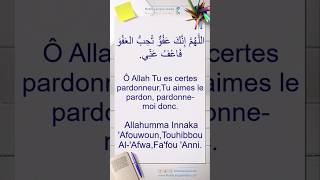 اللَّهُمَّ إِنَّكَ عَفُوٌّ تُحِبُّ الْعَفْوَ
فَاعْفُ عَنِّي.
Ô Allah Tu es certes
pardonneur,Tu aimes le
pardon, pardonne-
moi donc.
Allahumma Innaka
'Afouwoun,Touhibbou
Al-'Afwa,Fa'fou 'Anni.